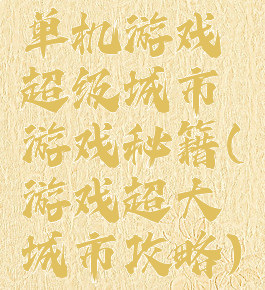 单机游戏
超级城市
游戏秘籍(
游戏超大
城市攻略)